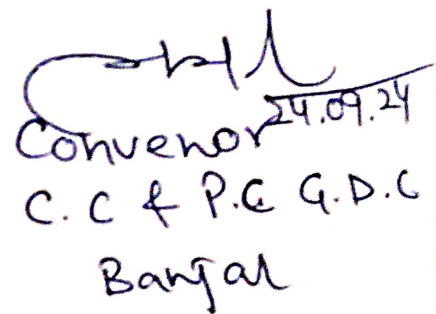 24.09.24
Convenor
C.C & P.C G.D.C
Banjar